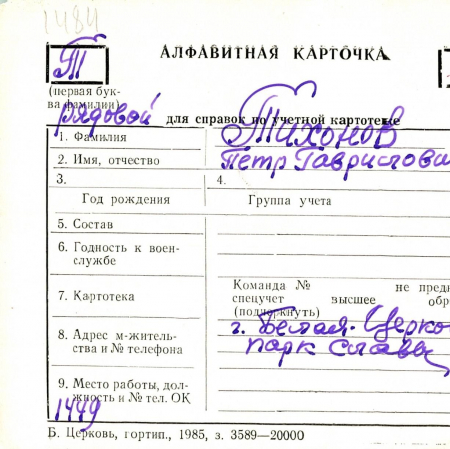 1484
АЛФАВИТНАЯ КАРТОЧКА
Т
(первая бук-
ва фамилии)
рядовой
для справок по учетной картотеке
1. Фамилия Тихонов
2. Имя, отчество Петр
3. 4.
Год рождения Группа учета
5. Состав
6. Годность к воен-
службе
Команда № не предн
7. Картотека спецучет высшее обр
(подчеркнуть)
8. Адрес м-житель-
ства и № телефона
г. Белая-Церко
парк славы
9. Место работы, дол-
жность и № тел. ОК
1449
Б. Церковь, гортип., 1985, з. 3589—20000